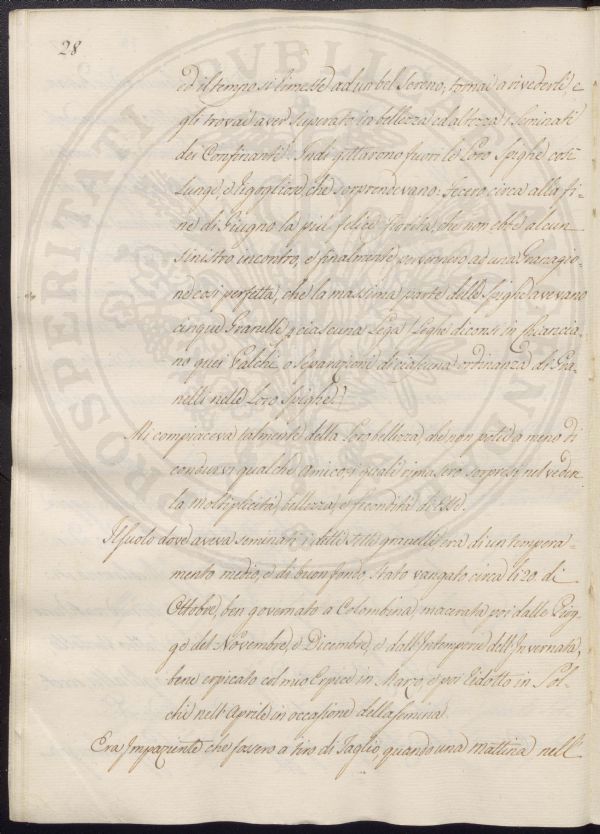 28
ed il tempo si rimesse ad un bel sereno, tornai a rivederli, e
gli trovai aver superato in bellezza ed altezza i seminati
dei Confinanti. Indi gittarono fuori le loro Spighe così
lunge, e rigogliose, che sorprendevano: fecero circa alla fi-
ne di Giugno la più felice fiorita, che non ebbe alcun
sinistro incontro, e finalmente pervennero ad una Granagio-
ne così perfetta, che la massima parte delle Spighe avevano
cinque Granelle p ciascuna Sega (Seghe diconsi in
no quei Valchi, o Separazioni di ciascuna ordinanza di Gra-
nelli nelle loro Spighe.)
Mi compiaceva talmente della loro bellezza, che non potei a meno di
condurvi qualche amico, i quali rimasero sorpresi nel veder
la moltiplicità, bellezza, e fecondità di esse.
Il suolo dove aveva seminati i granelli era di un tempera-
mento medio, e di buon fondo stato vangato circa li 20 di
Ottobre, ben governato a Colombina, macerata poi dalle Piog-
ge del Novembre, e Dicembre, e dall'Intemperie dell'Invernata,
bene erpicato col mio Erpice in Marzo, e poi ridotto in Sol-
chi nell'Aprile in occasione della semina.
Era Impaziente che fossero a tiro di Taglio, quando una mattina nell'
PROSPERITATI PUBLICAE